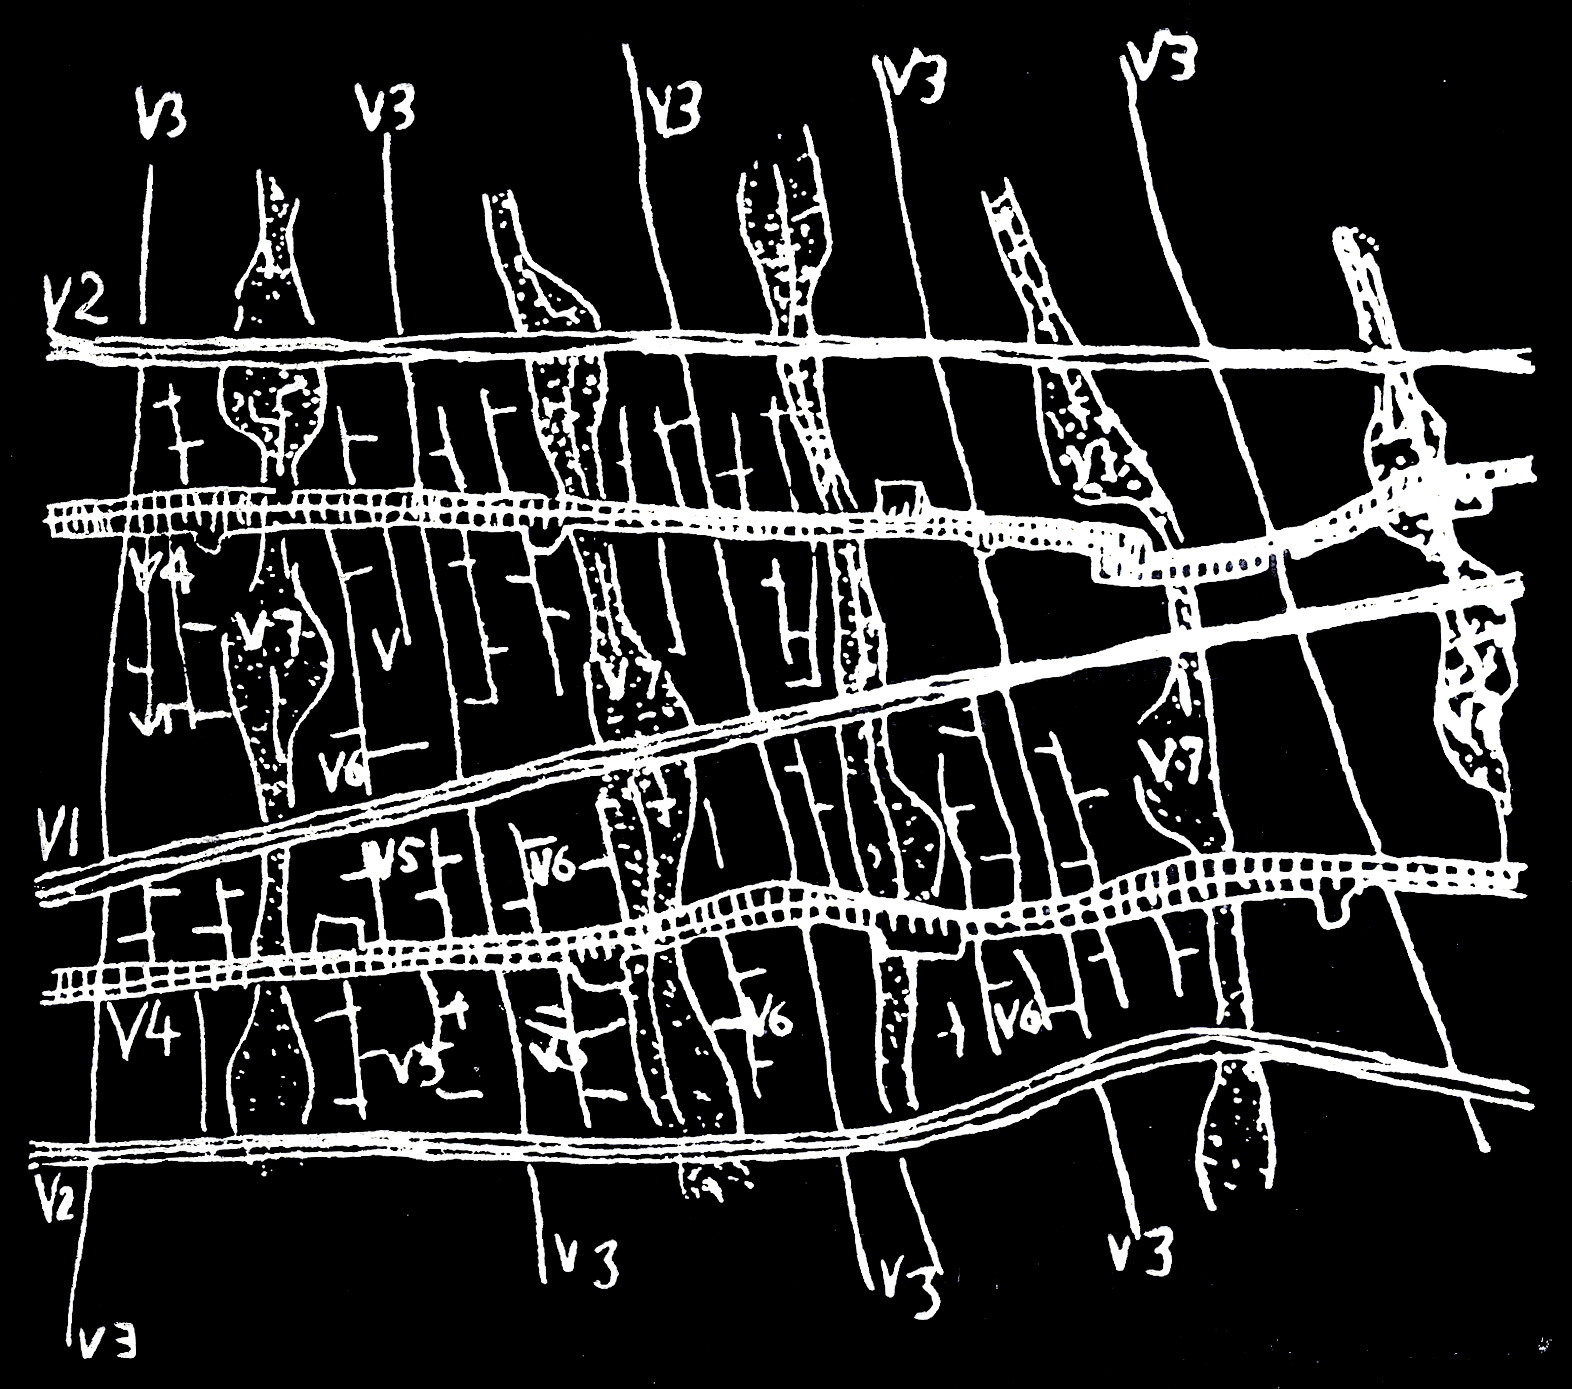 V3
V3
V3
V3
V3
V2
V1
V4
V7
V
V7
V7
V6
V1
V5
V6
V4
V6
V6
V3
V2
V3
V3
V3
V3